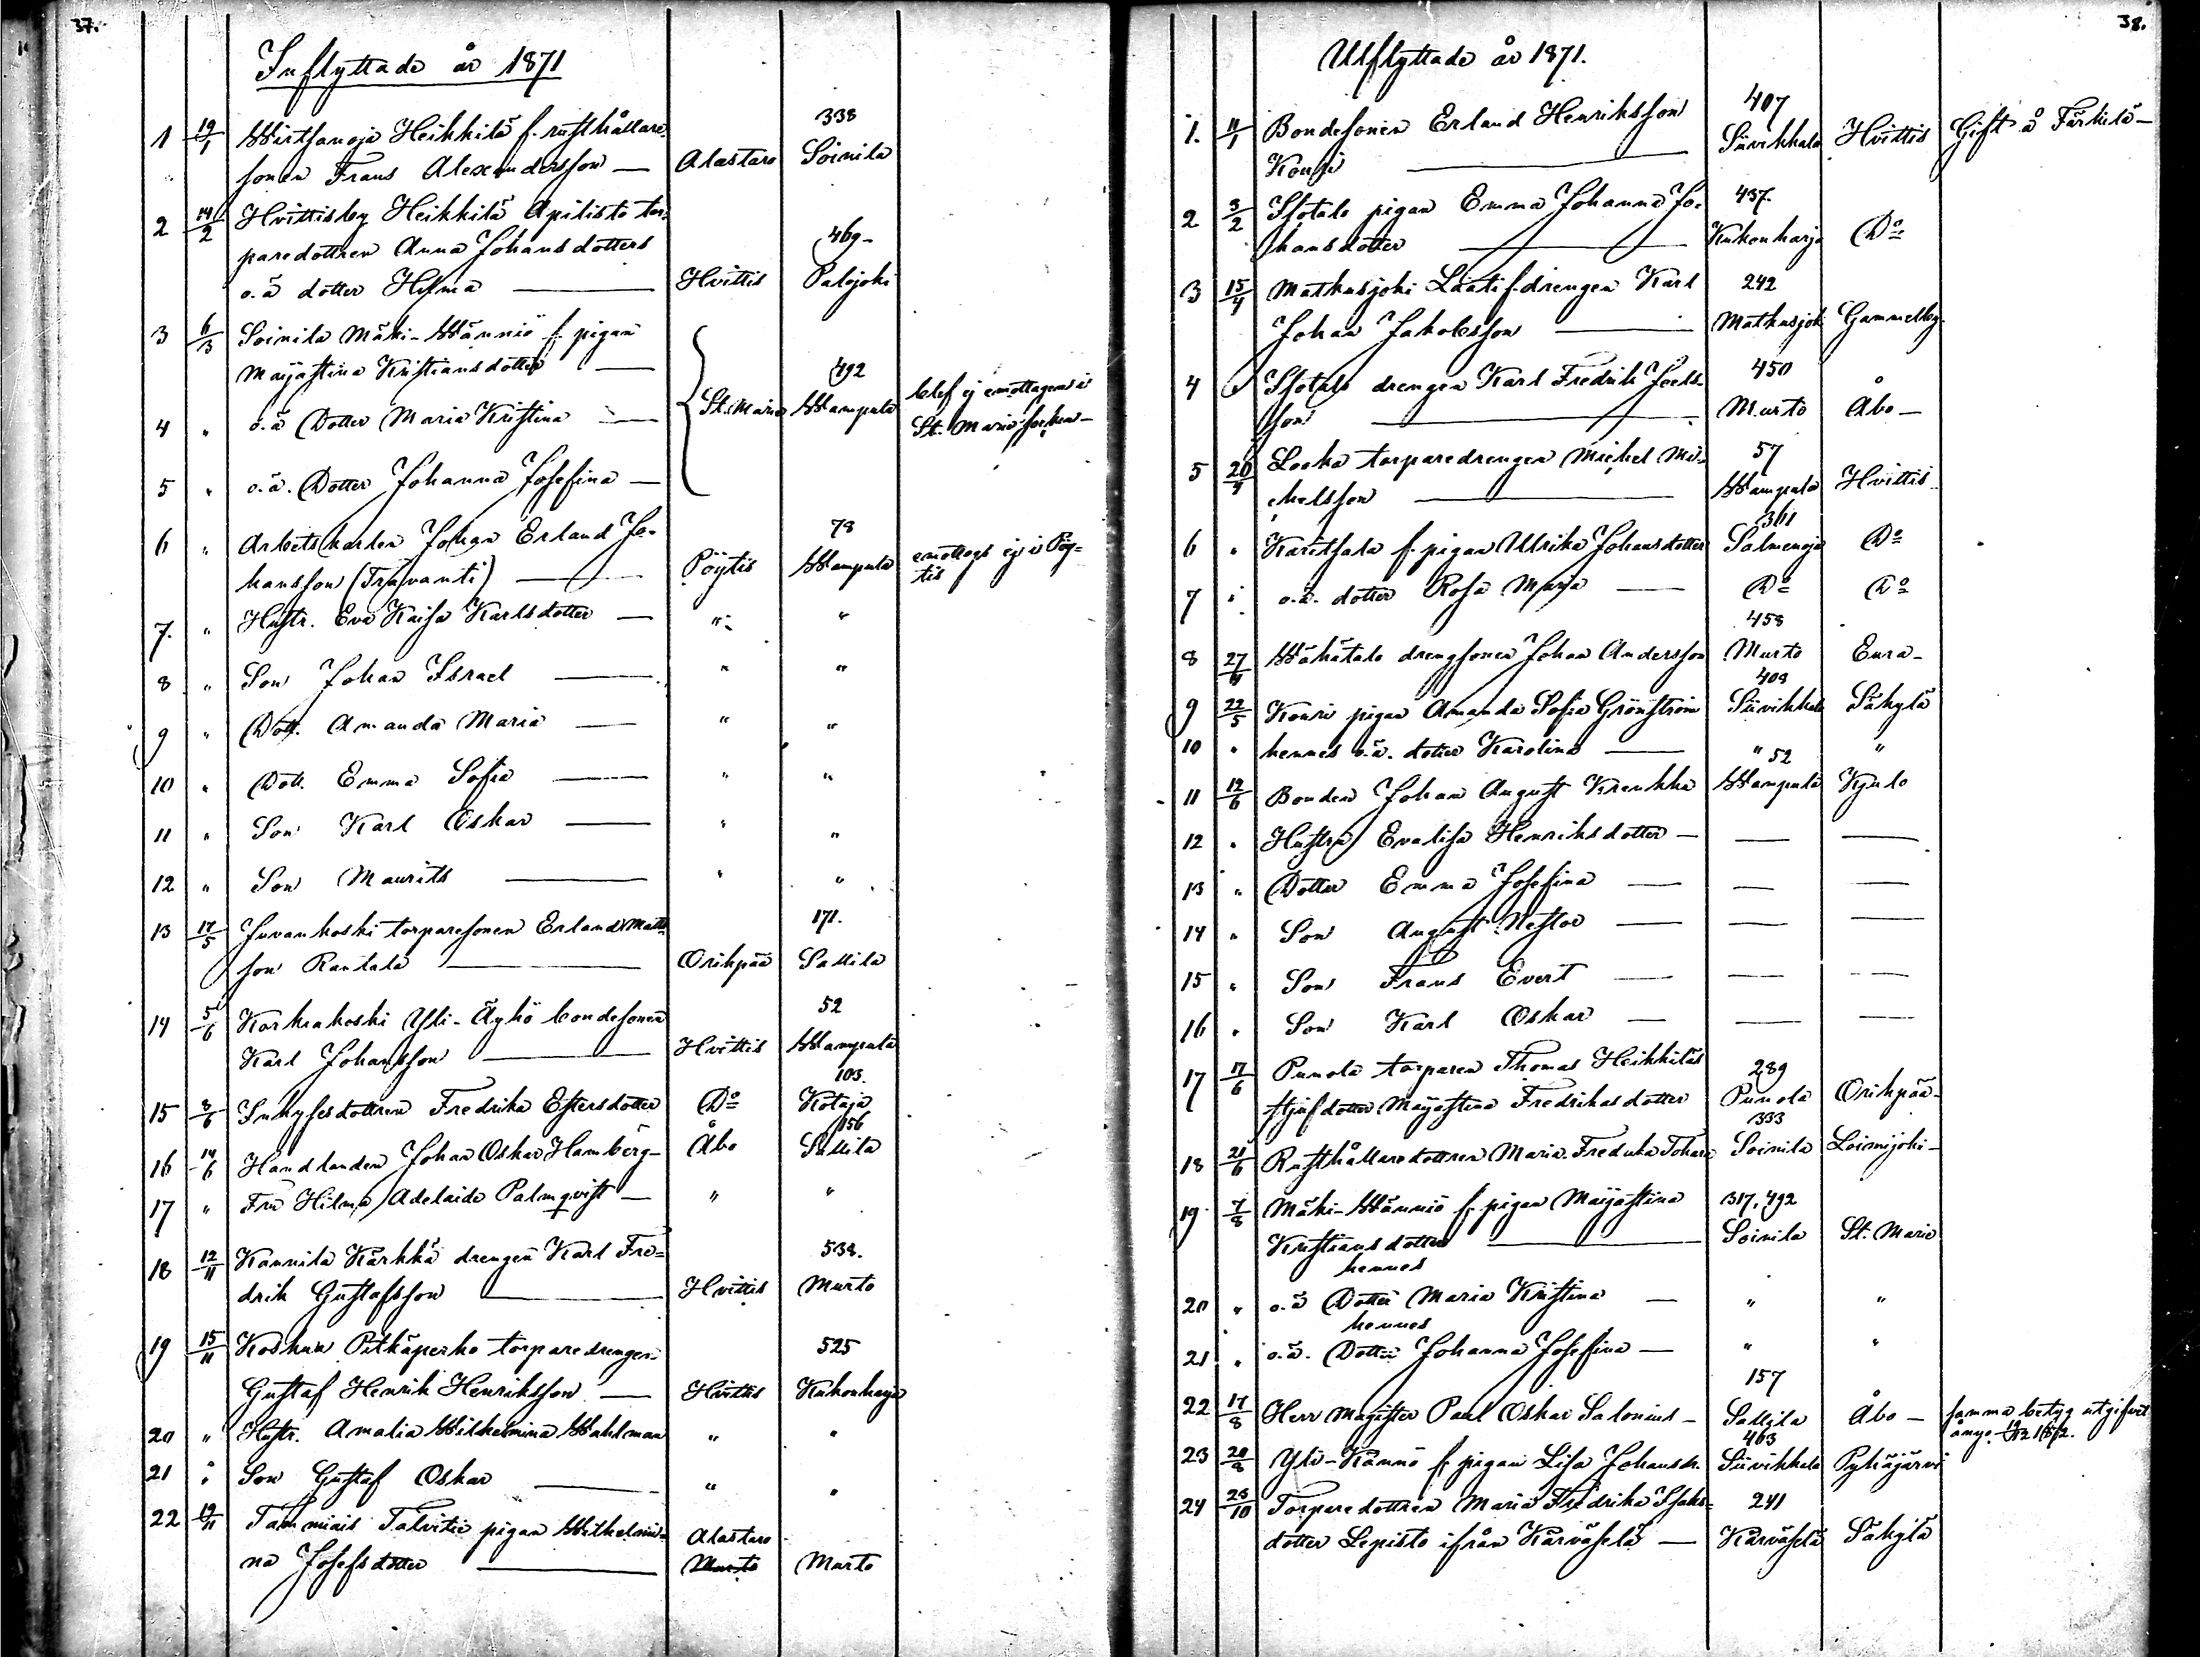 37.
Inflyttade år 1871
1 19/1 Wirtsanoja Heikkilä f. rusthållare
338
sonen Frans Alexandersson — Alastaro Soinila
2 14/2 Hvittisby Heikkilä Apilisto tor-
paredottren Anna Johansdotters
469-
o.ä dotter Hilma — Hvittis Palojoki
3 6/3 Soinila Mäki-Wänniö f. pigan
Maijastina Kristiansdotter —
492
4 " o.ä Dotter Maria Kristina — St. Marie Wampula blef ej emottagen i
St. Marie socken-
5 " o.ä. Dotter Johanna Josefina —
6 " Arbetskarlen Johan Erland Jo-
78
hansson (Travanti) — Pöytis Wampula emottogs ej i Pöy-
tis
7. " Hustr. Eva Kaisa Karlsdotter — " "
8 " Son Johan Israel — " "
9 " Dott. Amanda Maria — " "
10 " Dott. Emma Sofia — " "
11 " Son Karl Oskar — " "
12 " Son Maurits — " "
13 17/5 Juvankoski torparesonen Erland Matts-
171.
son Rantala — Orihpää Sallila
14 5/6 Korkiakoski Yli-Äyhö bondesonen
52
Karl Johansson — Hvittis Wampula
103.
15 8/6 Inhysesdottren Fredrika Estersdotter Do Kotaja
156
16 14/6 Handlanden Johan Oskar Hamberg- Åbo Sallila
17 " Fru Hilma Adelaide Palmqvist — " "
18 12/11 Kannila Kärkkä drengen Karl Fre-
538.
drik Gustafsson — Hvittis Murto
19 15/11 Koskua Pitkäperko torparedrengen
525
Gustaf Henrik Henriksson — Hvittis Kukonharja
20 " Hustr. Amalia Wilhelmina Wahlman " "
21 " Son Gustaf Oskar — " "
22 19/11 Tammiais Talvitie pigan Wilhelmi-
Alastaro
na Josefsdotter — Murto Murto
38.
Utflyttade år 1871.
407
1. 11/1 Bondesonen Erland Henriksson Siivikkala Hvittis Gift å Färkilä-
Konsi —
2 3/2 Isotalo pigan Emma Johanna Jo-
437.
hansdotter — Kukonharja Do
3 15/4 Matkusjoki Läätif.drengen Karl
242
Johan Jakobsson — Matkusjoki Gammelby-
4 " Isotalo drengen Karl Fredrik Joels-
450
son — Murto Åbo-
5 20/4 Looka torparedrengen Michel Mi-
57
chelsson — Wampula Hvittis
361
6 " Karitsala f. pigan Ulrika Johansdotter Salmenoja Do
7 " o.ä. dotter Rosa Maria — Do Do
458
8 27/4 Wähätalo drengsonen Johan Andersson Murto Eura-
408
9 22/5 Konsi pigan Amanda Sofia Grönström Siivikkala Säkylä
10 " hennes o.ä. dotter Karolina — " "
52
11 12/6 Bonden Johan August Krenkka Wampula Kjulo
12 " Hustru Evalisa Henriksdotter — — —
13 " Dotter Emma Josefina — — —
14 " Son August Nestor — — —
15 " Son Frans Evert — — —
16 " Son Karl Oskar — — —
17 17/6 Punola torparen Thomas Heikkiläs
289
stjufdotter Maijastina Fredrikasdotter Punola Orihpää-
333
18 21/6 Rusthållaredottren Maria Fredrika Johansd. Soinila Loimijoki-
19 7/8 Mäki-Wänniö f. pigan Maijastina 317, 492
Kristiansdotter — Soinila St. Marie
hennes
20 " o.ä Dotter Maria Kristina — " "
hennes
21 " o.ä. Dotter Johanna Josefina — " "
157
22 17/8 Herr Magister Paul Oskar Salonius — Sallila Åbo — samma betyg utgifvit
ånyo 1872.
463
23 20/8 Yli-Kännö f. pigan Lisa Johansd. Siivikkala Pyhäjärvi
24 23/10 Torparedottren Maria Fredrika Isaks-
241
dotter Lepistö ifrån Kärväselä — Kärväselä Säkylä